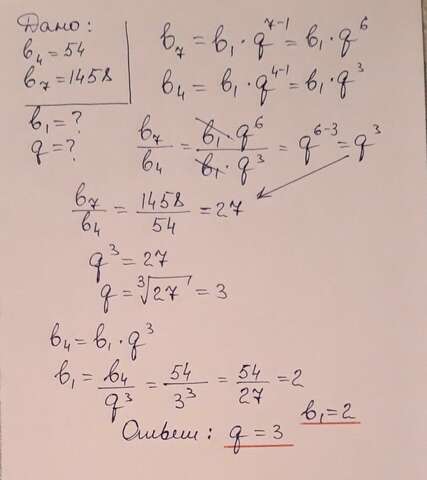 Дано:
b₄ = 54
b₇ = 1458
b₁ = ?
q = ?
b₇ = b₁ · q⁷⁻¹ = b₁ · q⁶
b₄ = b₁ · q⁴⁻¹ = b₁ · q³
b₇/b₄ = b₁ · q⁶ / b₁ · q³ = q⁶⁻³ = q³
b₇/b₄ = 1458/54 = 27
q³ = 27
q = ³√27 = 3
b₄ = b₁ · q³
b₁ = b₄/q³ = 54/3³ = 54/27 = 2
Ответ: q = 3 b₁ = 2